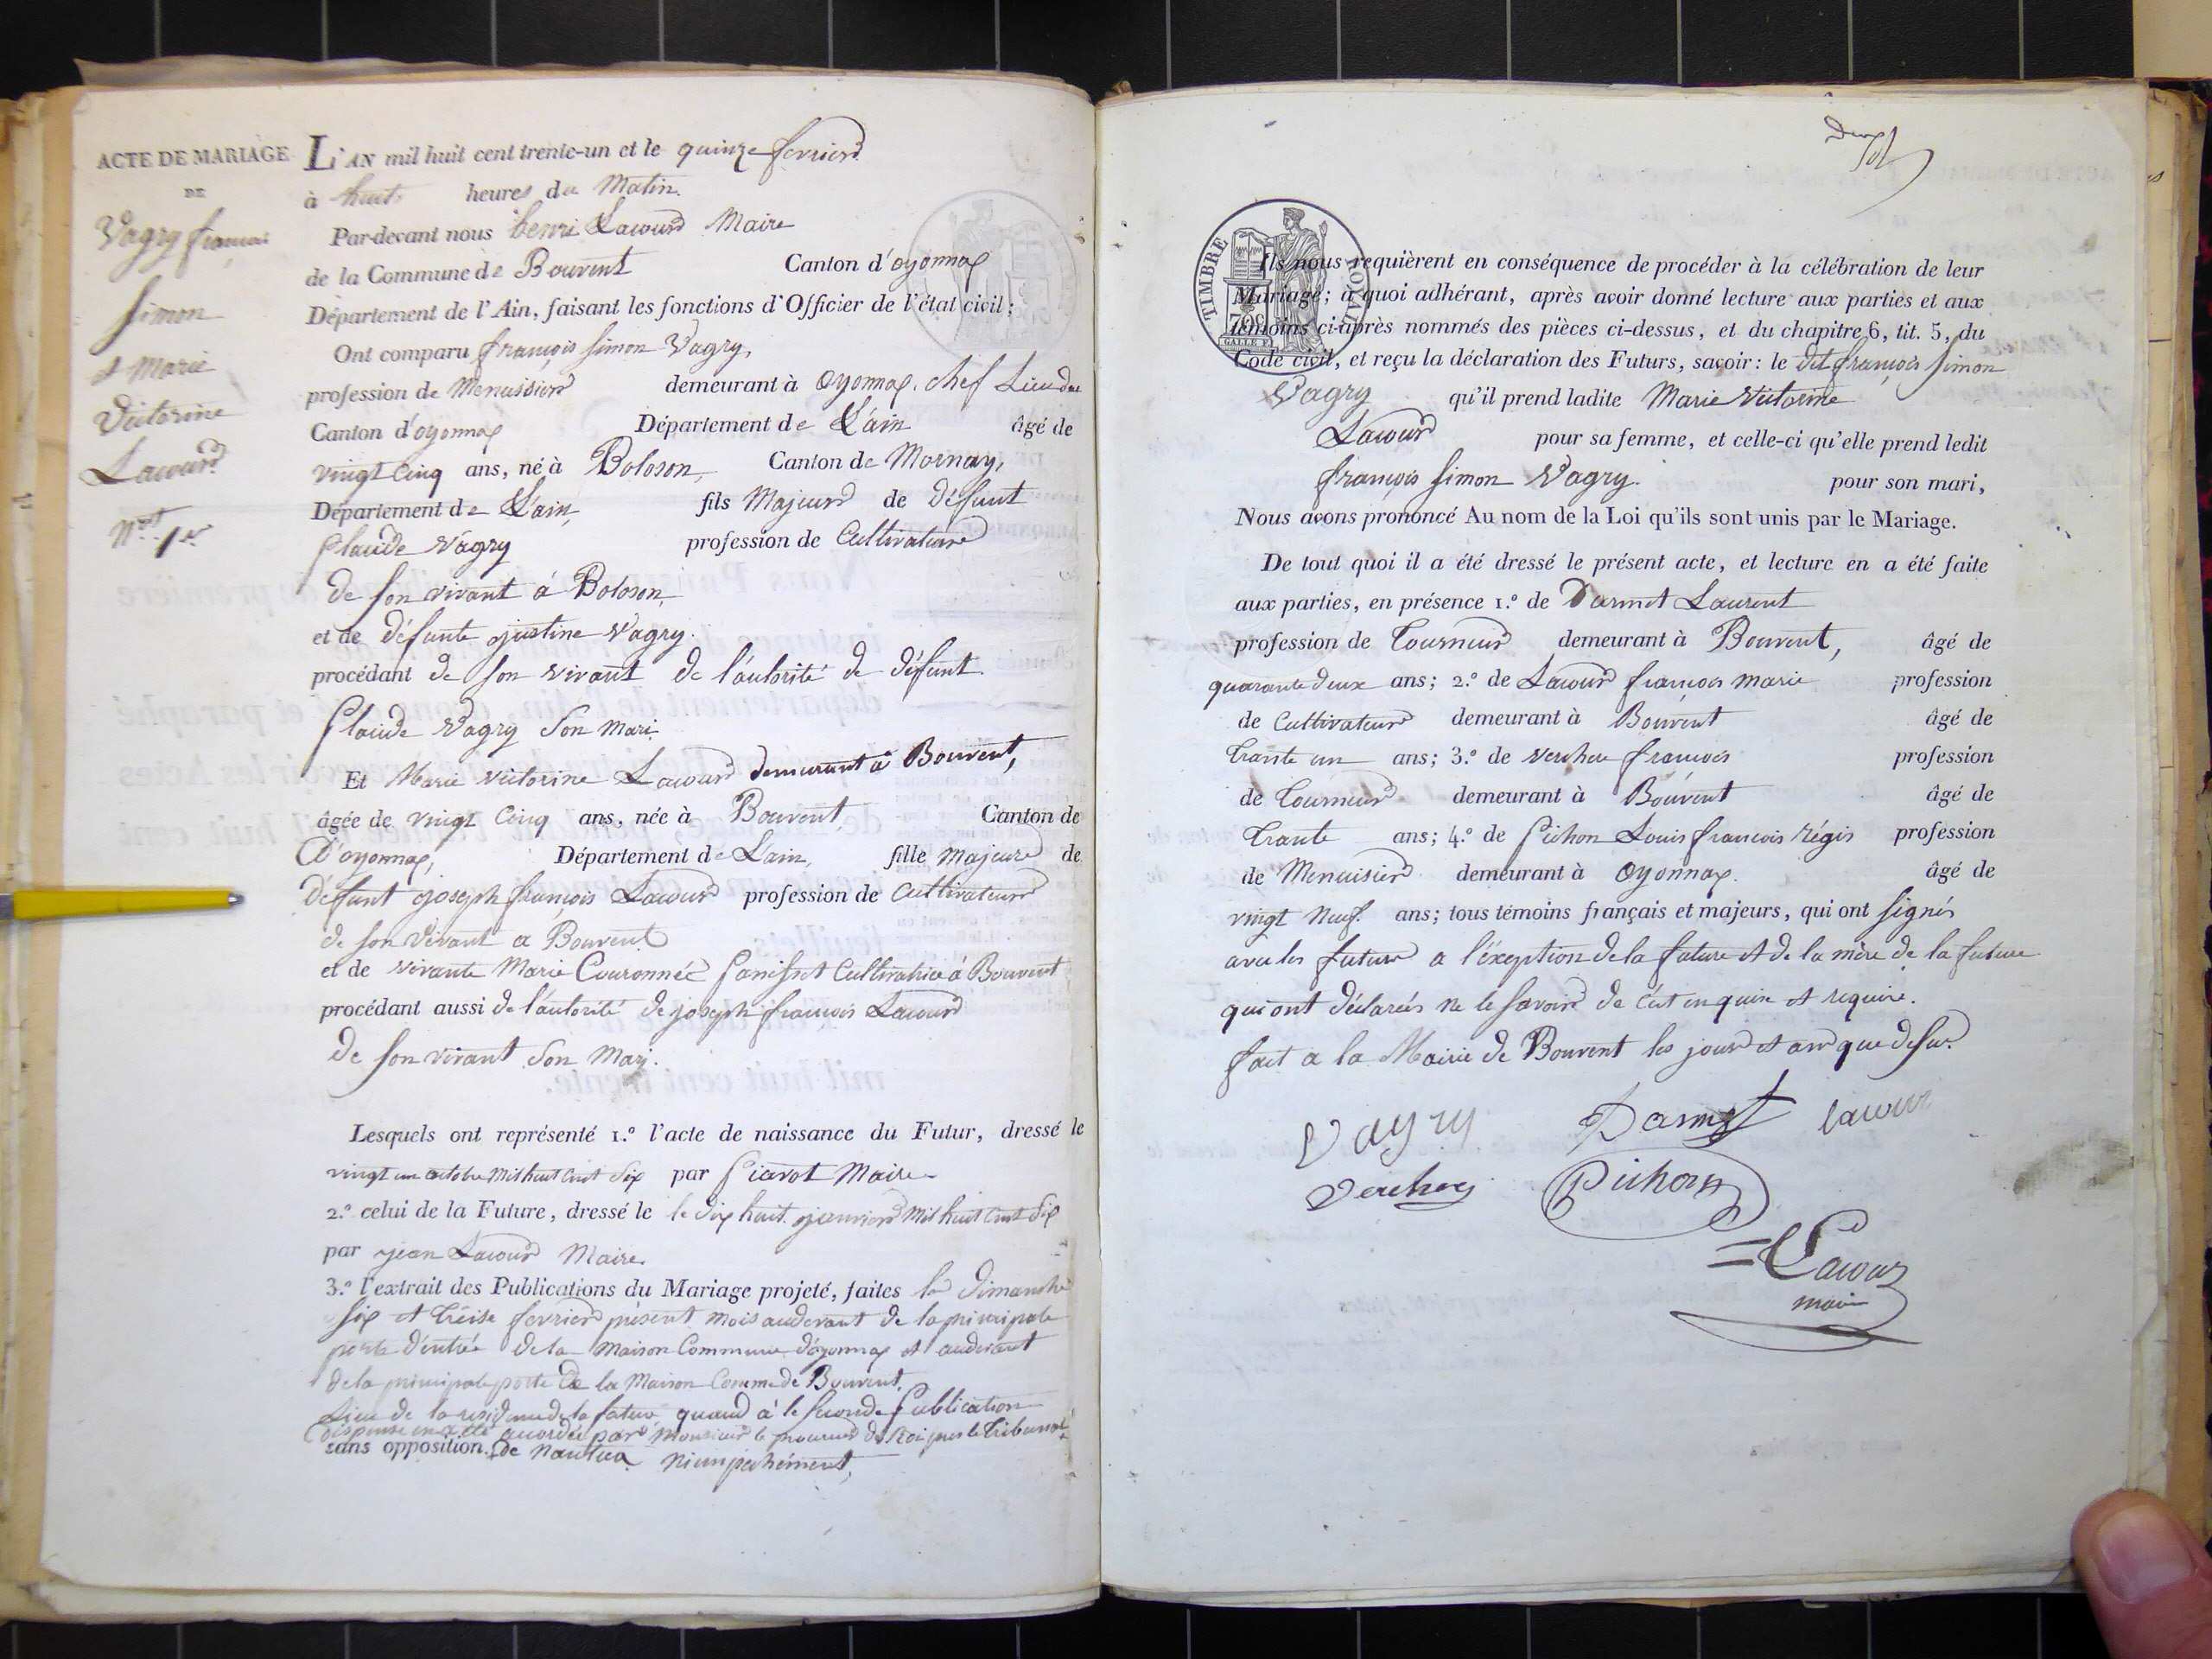 ACTE DE MARIAGE
DE
Vagry francois
Simon
& Marie
Victorine
Lacour
N.º 1er
L'AN mil huit cent trente-un et le quinze fevrier
à huit heures du Matin.
Par-devant nous henri Lacour Maire
de la Commune de Bouvent Canton d'oyonnax
Département de l'Ain, faisant les fonctions d'Officier de l'état civil;
Ont comparu françois Simon Vagry,
profession de Menuisier demeurant à Oyonnax. chef Lieu du
Canton d'oyonnax Département de L'ain âgé de
vingt Cinq ans, né à Boloson, Canton de Mornay,
Département de L'ain, fils Majeur de défunt
Claude Vagry profession de Cultivateur
de son vivant à Boloson,
et de défunte justine Vagry.
procédant de son vivant de l'autorité de défunt
Claude Vagry Son Mari
Et Marie victorine Lacour demeurant à Bouvent,
âgée de vingt Cinq ans, née à Bouvent Canton de
D'oyonnax, Département de L'ain, fille majeure de
Défunt joseph françois Lacour profession de Cultivateur
de son Vivant a Bouvent
et de vivante Marie Couronnée Cultivatrice à Bouvent
procédant aussi de l'autorité de joseph francois Lacour
de son vivant Son Mari.
Lesquels ont représenté 1.º l'acte de naissance du Futur, dressé le
vingt un octobre Mil huit Cent Six par Maire
2.º celui de la Future, dressé le le dix huit janvier Mil huit Cent Six
par jean Lacour Maire.
3.º l'extrait des Publications du Mariage projeté, faites le Dimanche
Six et treise fevrier présent mois audevant de la principale
porte d'entrée de la Maison Commune d'oyonnax et audevant
de la principale porte de la Maison Comm.e de Bouvent,
Lieu de la residence de la future quand à le Seconde Publication
dispense en a été accordée par Monsieur le procureur du Roi pres le Tribunal
sans opposition. de Nantua ni empechement,
TIMBRE ROYAL
70c
Ils nous requièrent en conséquence de procéder à la célébration de leur
Mariage; à quoi adhérant, après avoir donné lecture aux parties et aux
témoins ci-après nommés des pièces ci-dessus, et du chapitre 6, tit. 5, du
Code civil, et reçu la déclaration des Futurs, savoir: le dit françois Simon
Vagry qu'il prend ladite Marie Victorine
Lacour pour sa femme, et celle-ci qu'elle prend ledit
françois Simon Vagry. pour son mari,
Nous avons prononcé Au nom de la Loi qu'ils sont unis par le Mariage.
De tout quoi il a été dressé le présent acte, et lecture en a été faite
aux parties, en présence 1.º de Darmet Laurent
profession de Tourneur demeurant à Bouvent, âgé de
quarante deux ans; 2.º de Lacour francois marie profession
de Cultivateur demeurant à Bouvent âgé de
trante un ans; 3.º de vercher francois profession
de Tourneur demeurant à Bouvent âgé de
trante ans; 4.º de Pichon Louis francois régis profession
de Menuisier demeurant à Oyonnax. âgé de
vingt Neuf. ans; tous témoins français et majeurs, qui ont signés
avec les futur a l'éxception de la future et de la mère de la future
qui ont déclarées ne le Savoir de cest enquire et require.
fait a la Mairie de Bouvent les jour et an que dessus.
Vagry Darmet lacour
Pichon
Lacour
maire